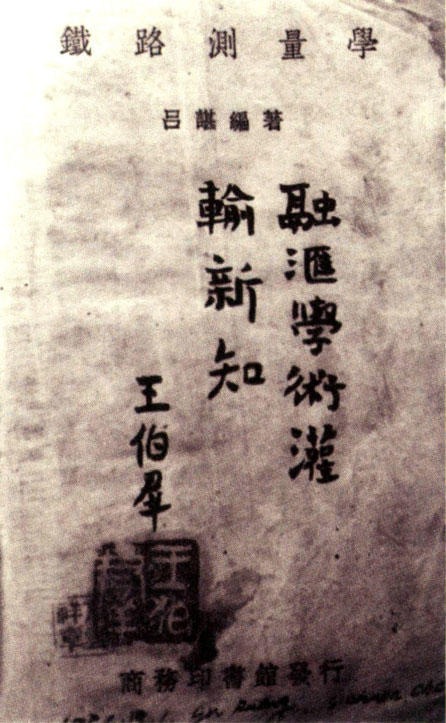 鐵路測量學
呂諶編著
融滙學術灌
輸新知
王伯羣
商務印書館發行